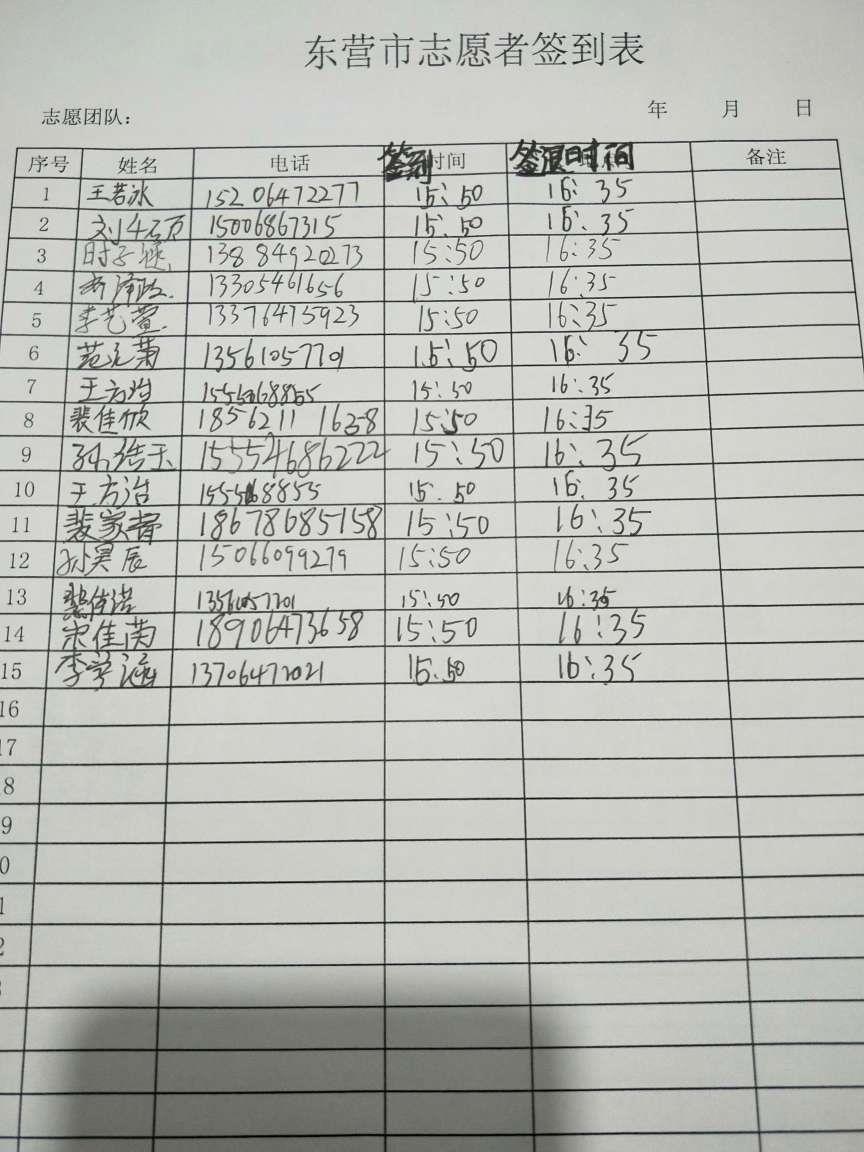 东营市志愿者签到表
志愿团队： 年 月 日
序号 姓名 电话 签到时间 签退时间 备注
1 王若冰 15206472277 15:50 16:35
2 15006867315 15:50 16:35
3 13884920273 15:50 16:35
4 13305461656 15:50 16:35
5 李艺萱 13376475923 15:50 16:35
6 13561057701 15:50 16:35
7 王方均 15:50 16:35
8 裴佳欣 18562111658 15:50 16:35
9 孙浩玉 15554686222 15:50 16:35
10 王方浩 15:50 16:35
11 18678685158 15:50 16:35
12 孙昊辰 15066099279 15:50 16:35
13 13561057701 15:50 16:35
14 宋佳茵 18906473658 15:50 16:35
15 李学涵 13706472021 15:50 16:35
16
17
8
9
0
1
2